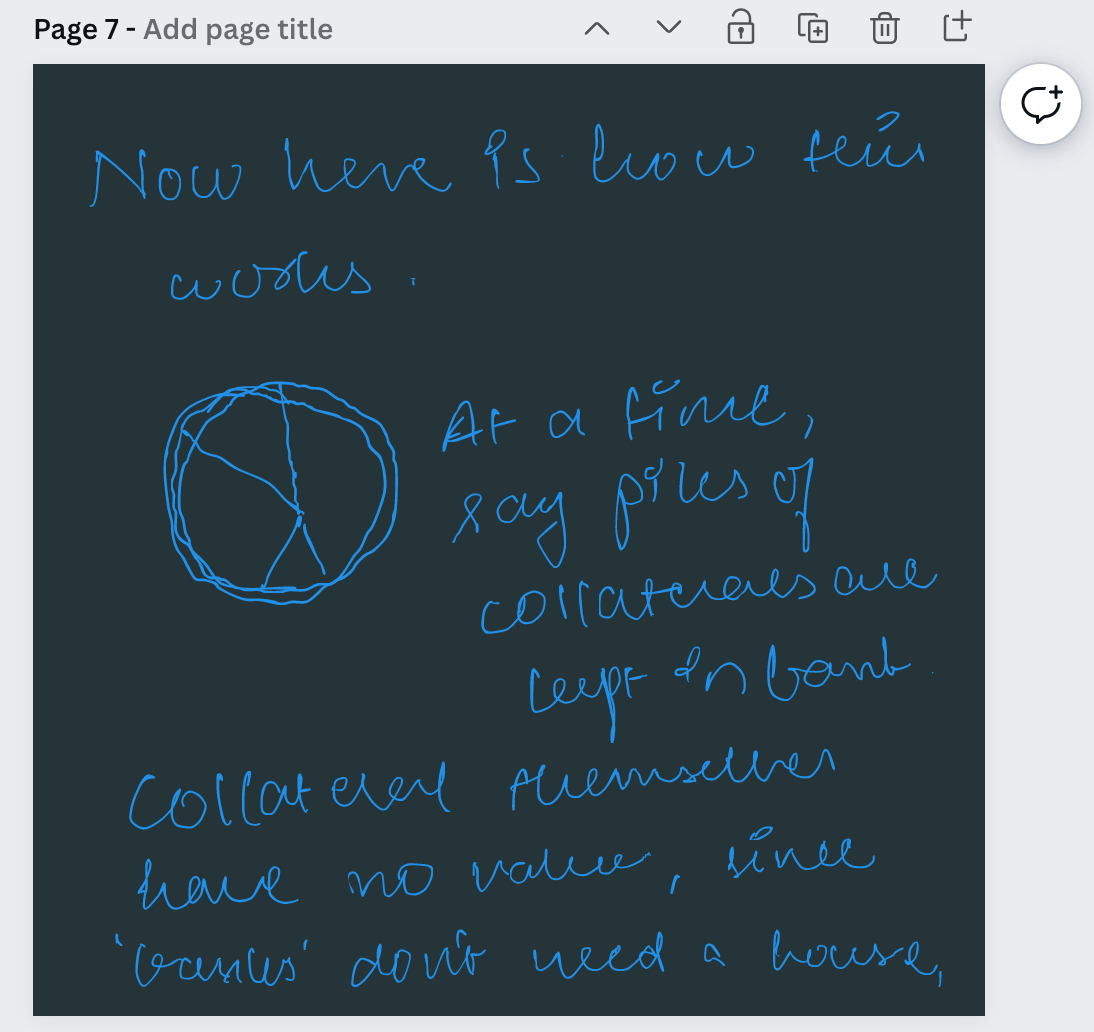 Page 7 - Add page title
Now here is how this
works.
At a time,
say piles of
collaterals are
kept in bank.
Collateral themselves
have no value, since
'banks' don't need a house,